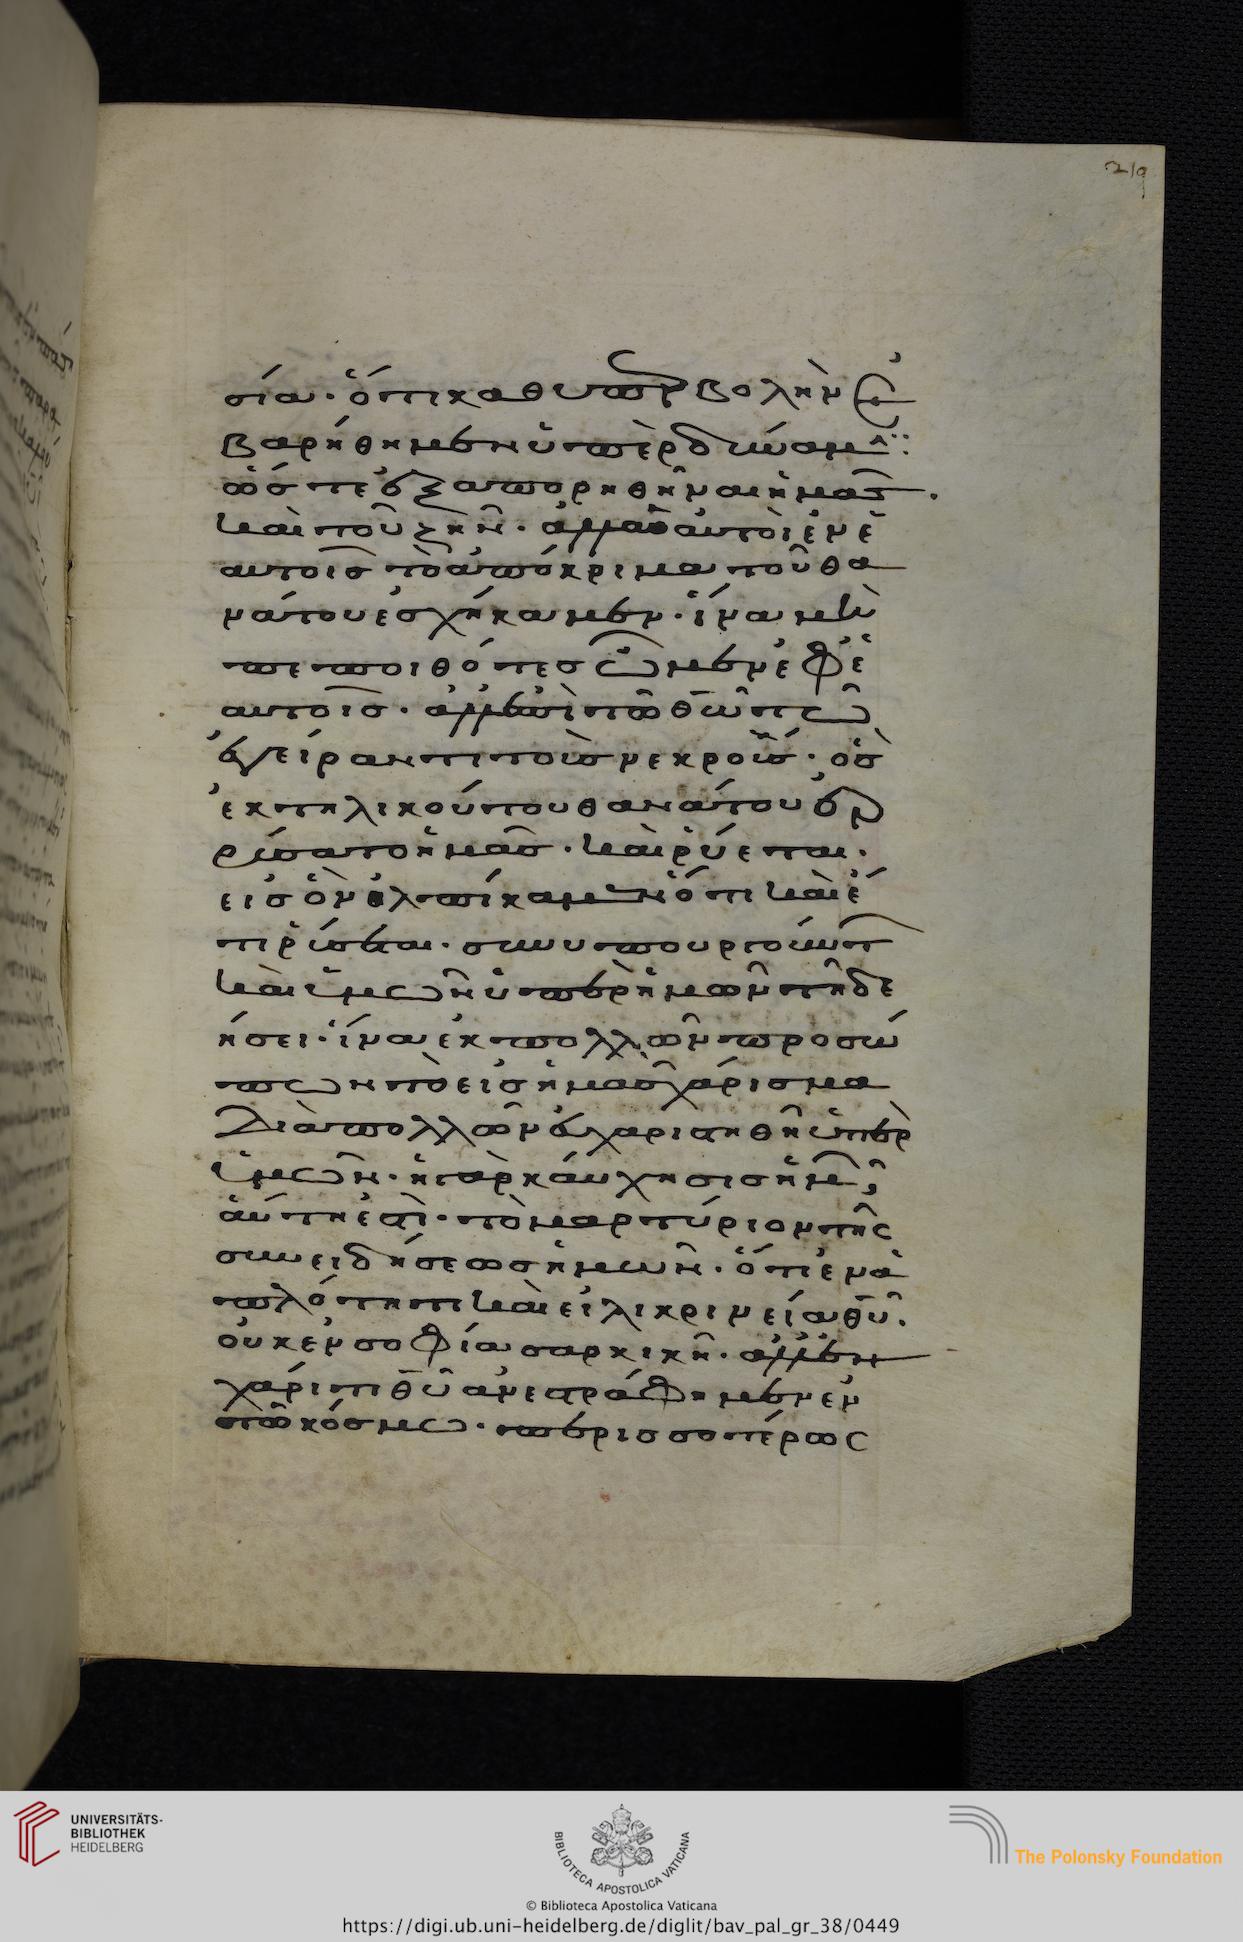 219
σία· ὅτι καθ ὑπερβολὴν ἐ
βαρήθημεν ὑπὲρ δύναμ::
ὥστε ἐξαπορηθῆναι ἡμᾶς.
καὶ τοῦ ζῆν· ἀλλὰ αὐτοὶ ἐν ἑ
αυτοῖς τὸ ἀπόκριμα τοῦ θα
νάτου ἐσχήκαμεν· ἵνα μὴ
πεποιθότες ὦμεν ἐφ ἑ
αυτοῖς· ἀλλ ἐπὶ τῶ θω τῶ
ἐγείραντι τοὺς νεκρούς· ὃς
ἐκ τηλικούτου θανάτου ἐρ
ρύσατο ἡμᾶς· καὶ ῥύεται·
εἰς ὃν ἠλπίκαμεν ὅτι καὶ ἔ
τι ῥύσεται· συνυπουργούντ
καὶ ὑμῶν ὑπὲρ ἡμῶν τῆ δε
ήσει· ἵνα ἐκ πολλῶν προσώ
πων τὸ εἰς ἡμᾶς χάρισμα
διὰ πολλῶν εὐχαριστηθῆ ὑπὲρ
ὑμῶν· ἡ γὰρ καύχησις ἡμ
αὕτη ἐστὶ· τὸ μαρτύριον τῆς
συνειδήσεως ἡμῶν· ὅτι ἐν ἁ
πλότητι καὶ εἰλικρινεία θυ·
οὐκ ἐν σοφία σαρκικῆ· ἀλλ ἐν
χάριτι θυ ἀνεστράφημεν ἐν
τῶ κόσμω· περισσοτέρως
UNIVERSITÄTS-
BIBLIOTHEK
HEIDELBERG
BIBLIOTECA APOSTOLICA VATICANA
© Biblioteca Apostolica Vaticana
https://digi.ub.uni-heidelberg.de/diglit/bav_pal_gr_38/0449
The Polonsky Foundation